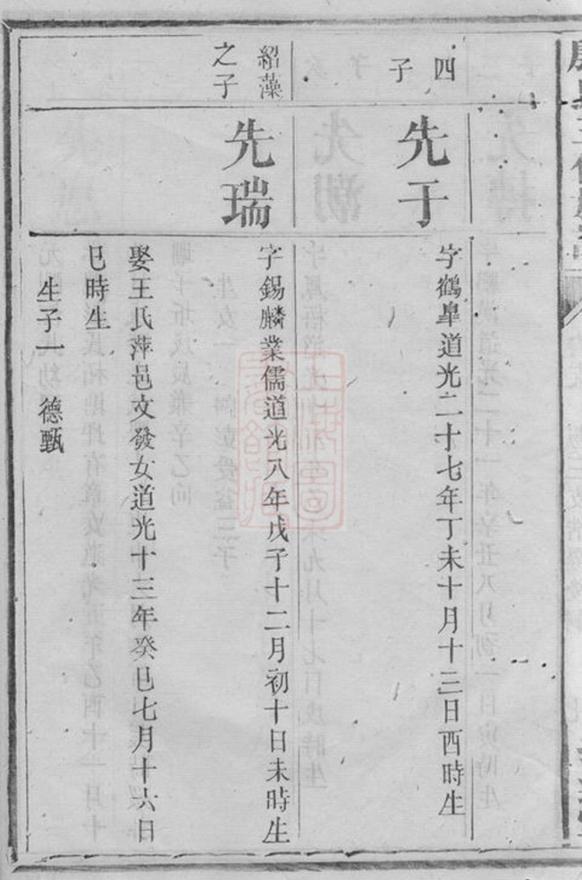 四子
先于
字鶴臯道光二十七年丁未十月十三日酉時生
紹藻之子
先瑞
字錫麟業儒道光八年戊子十二月初十日未時生
娶王氏萍邑文發女道光十三年癸巳七月十六日
巳時生
生子一 德甄